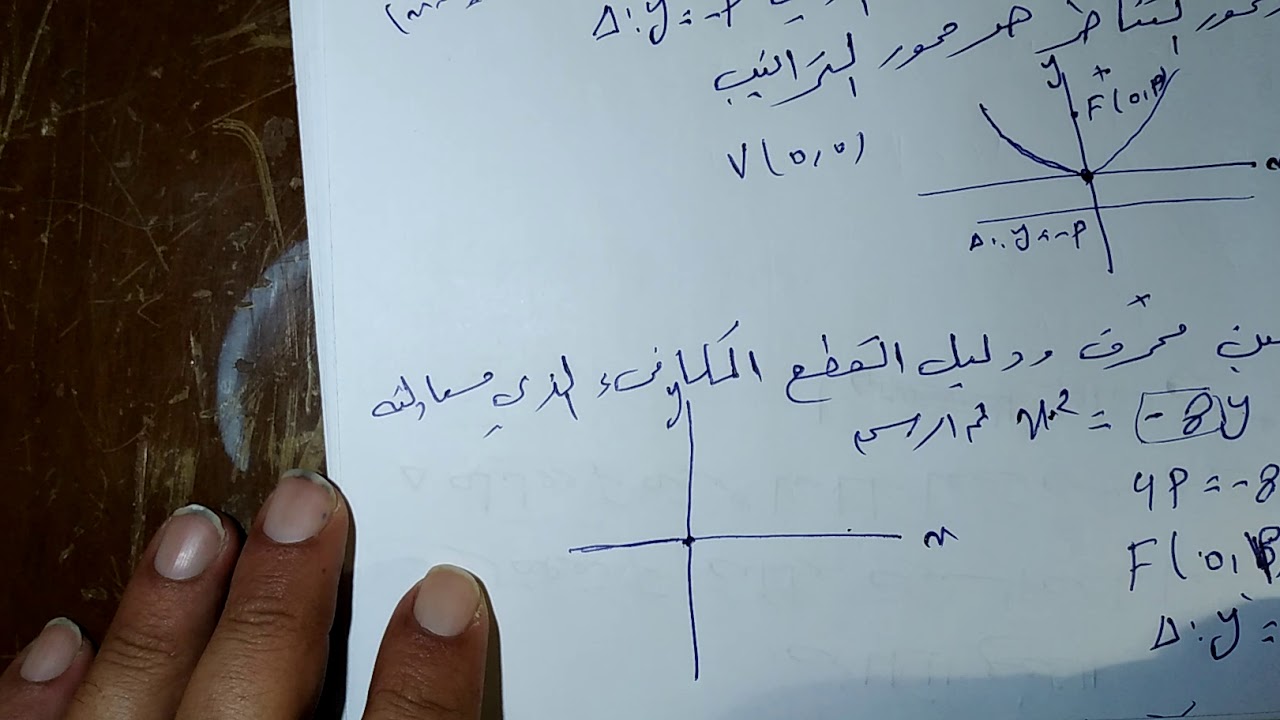 Δ: y = -P
محور التناظر هو محور التراتيب
V(0,0)
y
F(0,P)
x
Δ: y = -P
محرق ودليل القطع المكافئ الذي معادلته
x² = -8y ثم ارسم
y
x
4P = -8
F(0,P
Δ: y =